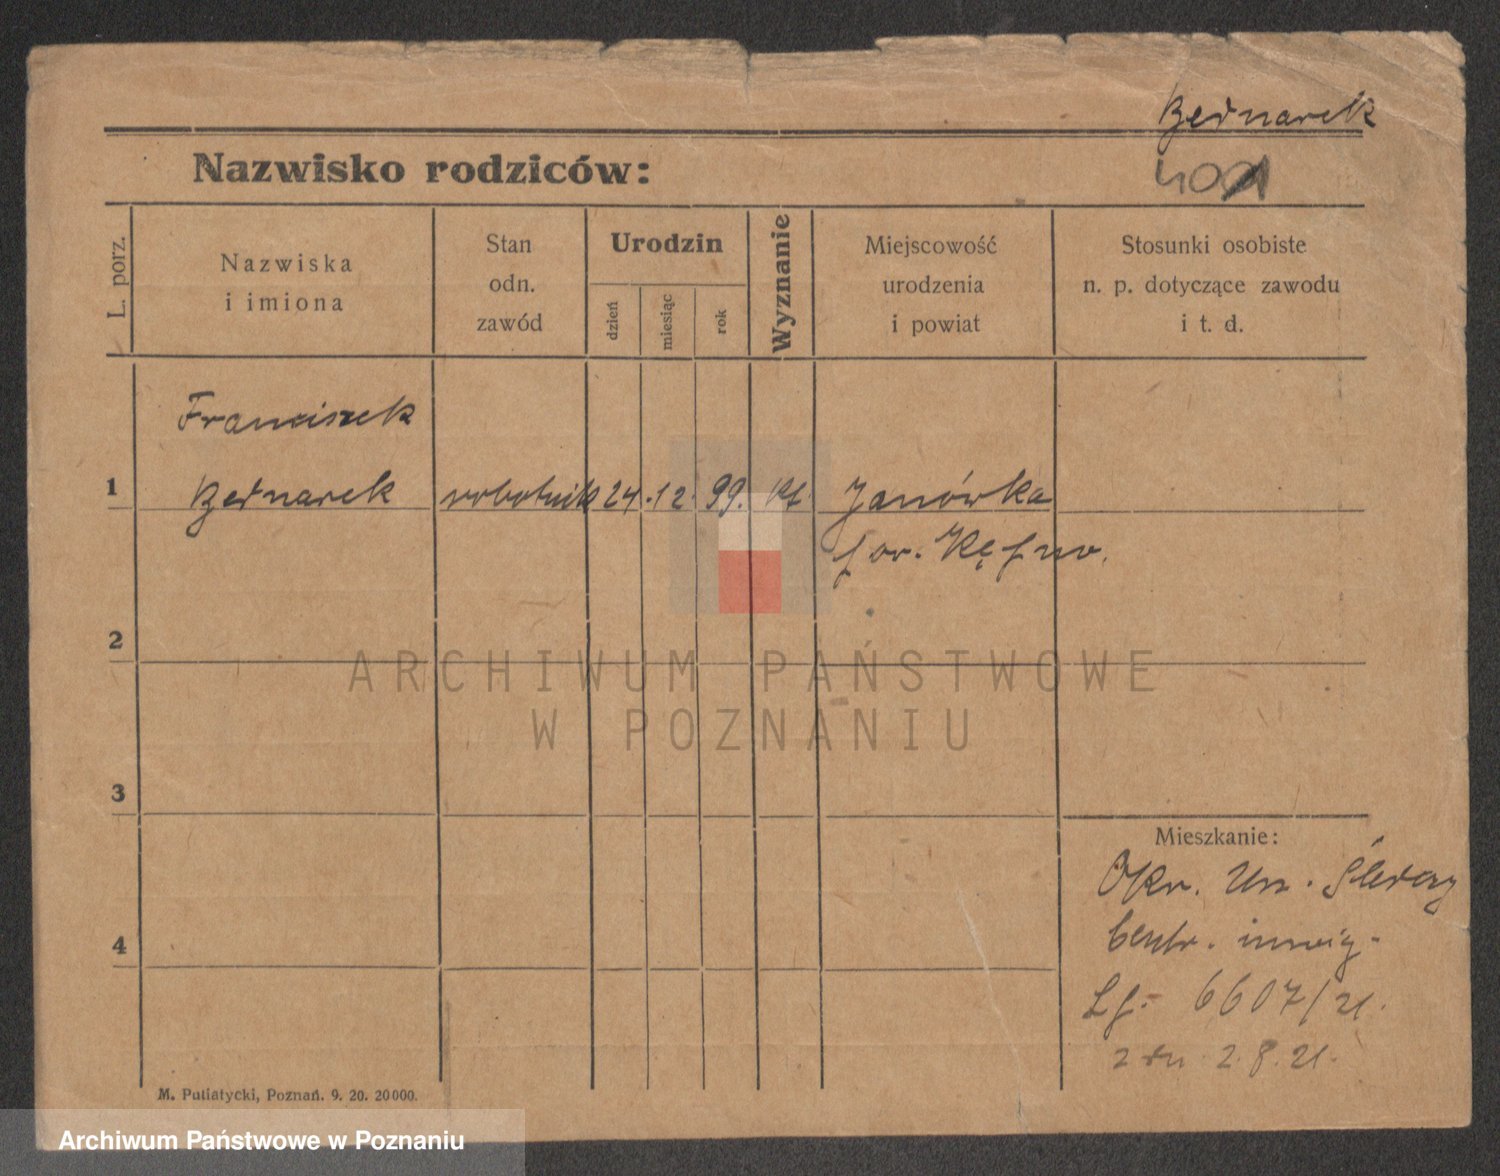 Bednarek
Nazwisko rodziców:
L. porz.
Nazwiska
i imiona
Stan
odn.
zawód
Urodzin
dzień
miesiąc
rok
Wyznanie
Miejscowość
urodzenia
i powiat
Stosunki osobiste
n. p. dotyczące zawodu
i t. d.
Franciszek
1 Bednarek robotnik 24. 12. 99. kt. Janówka
pow. Kępno.
2
ARCHIWUM PAŃSTWOWE
W POZNANIU
3
Mieszkanie:
Okr. Urz. Śledczy
Centr. inwig.
4
6607/21.
z dn. 2.8.21.
M. Putiatycki, Poznań. 9. 20. 20000.
Archiwum Państwowe w Poznaniu